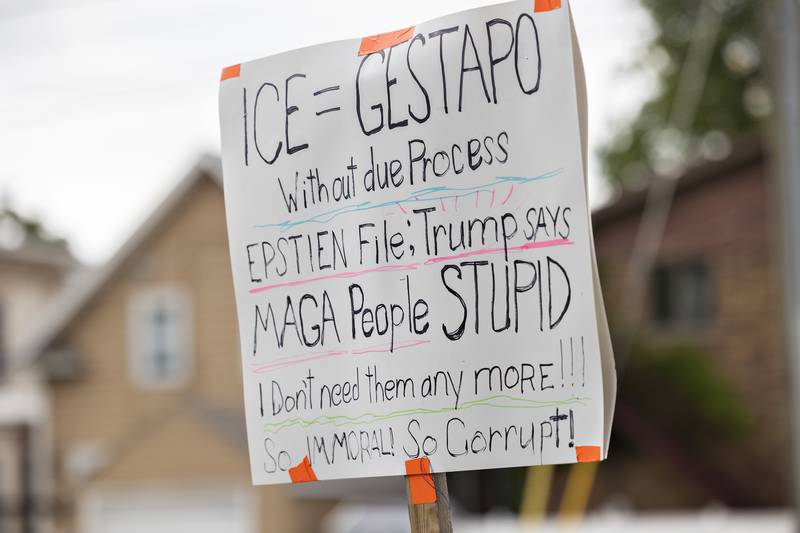 ICE = GESTAPO
Without due Process
EPSTIEN File; Trump SAYS
MAGA People STUPID
I Don't need them any MORE!!!
So IMMORAL! So Corrupt!